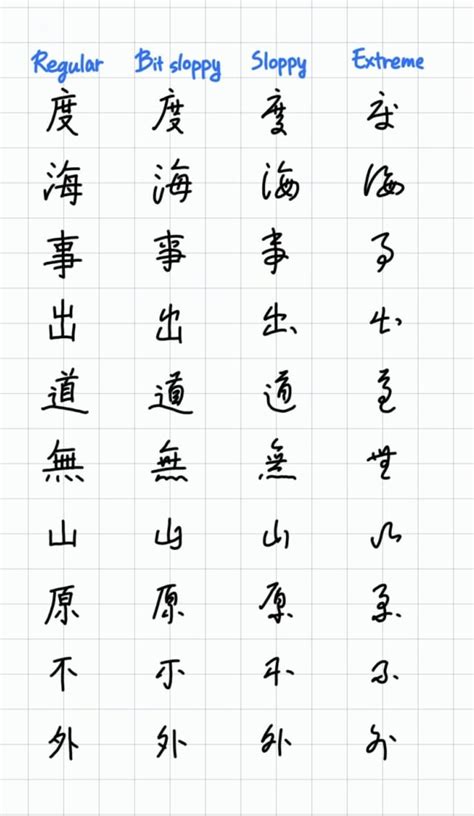 Regular Bit sloppy Sloppy Extreme
度 度 度 度
海 海 海 海
事 事 事 事
出 出 出 出
道 道 道 道
無 無 無 無
山 山 山 山
原 原 原 原
不 不 不 不
外 外 外 外